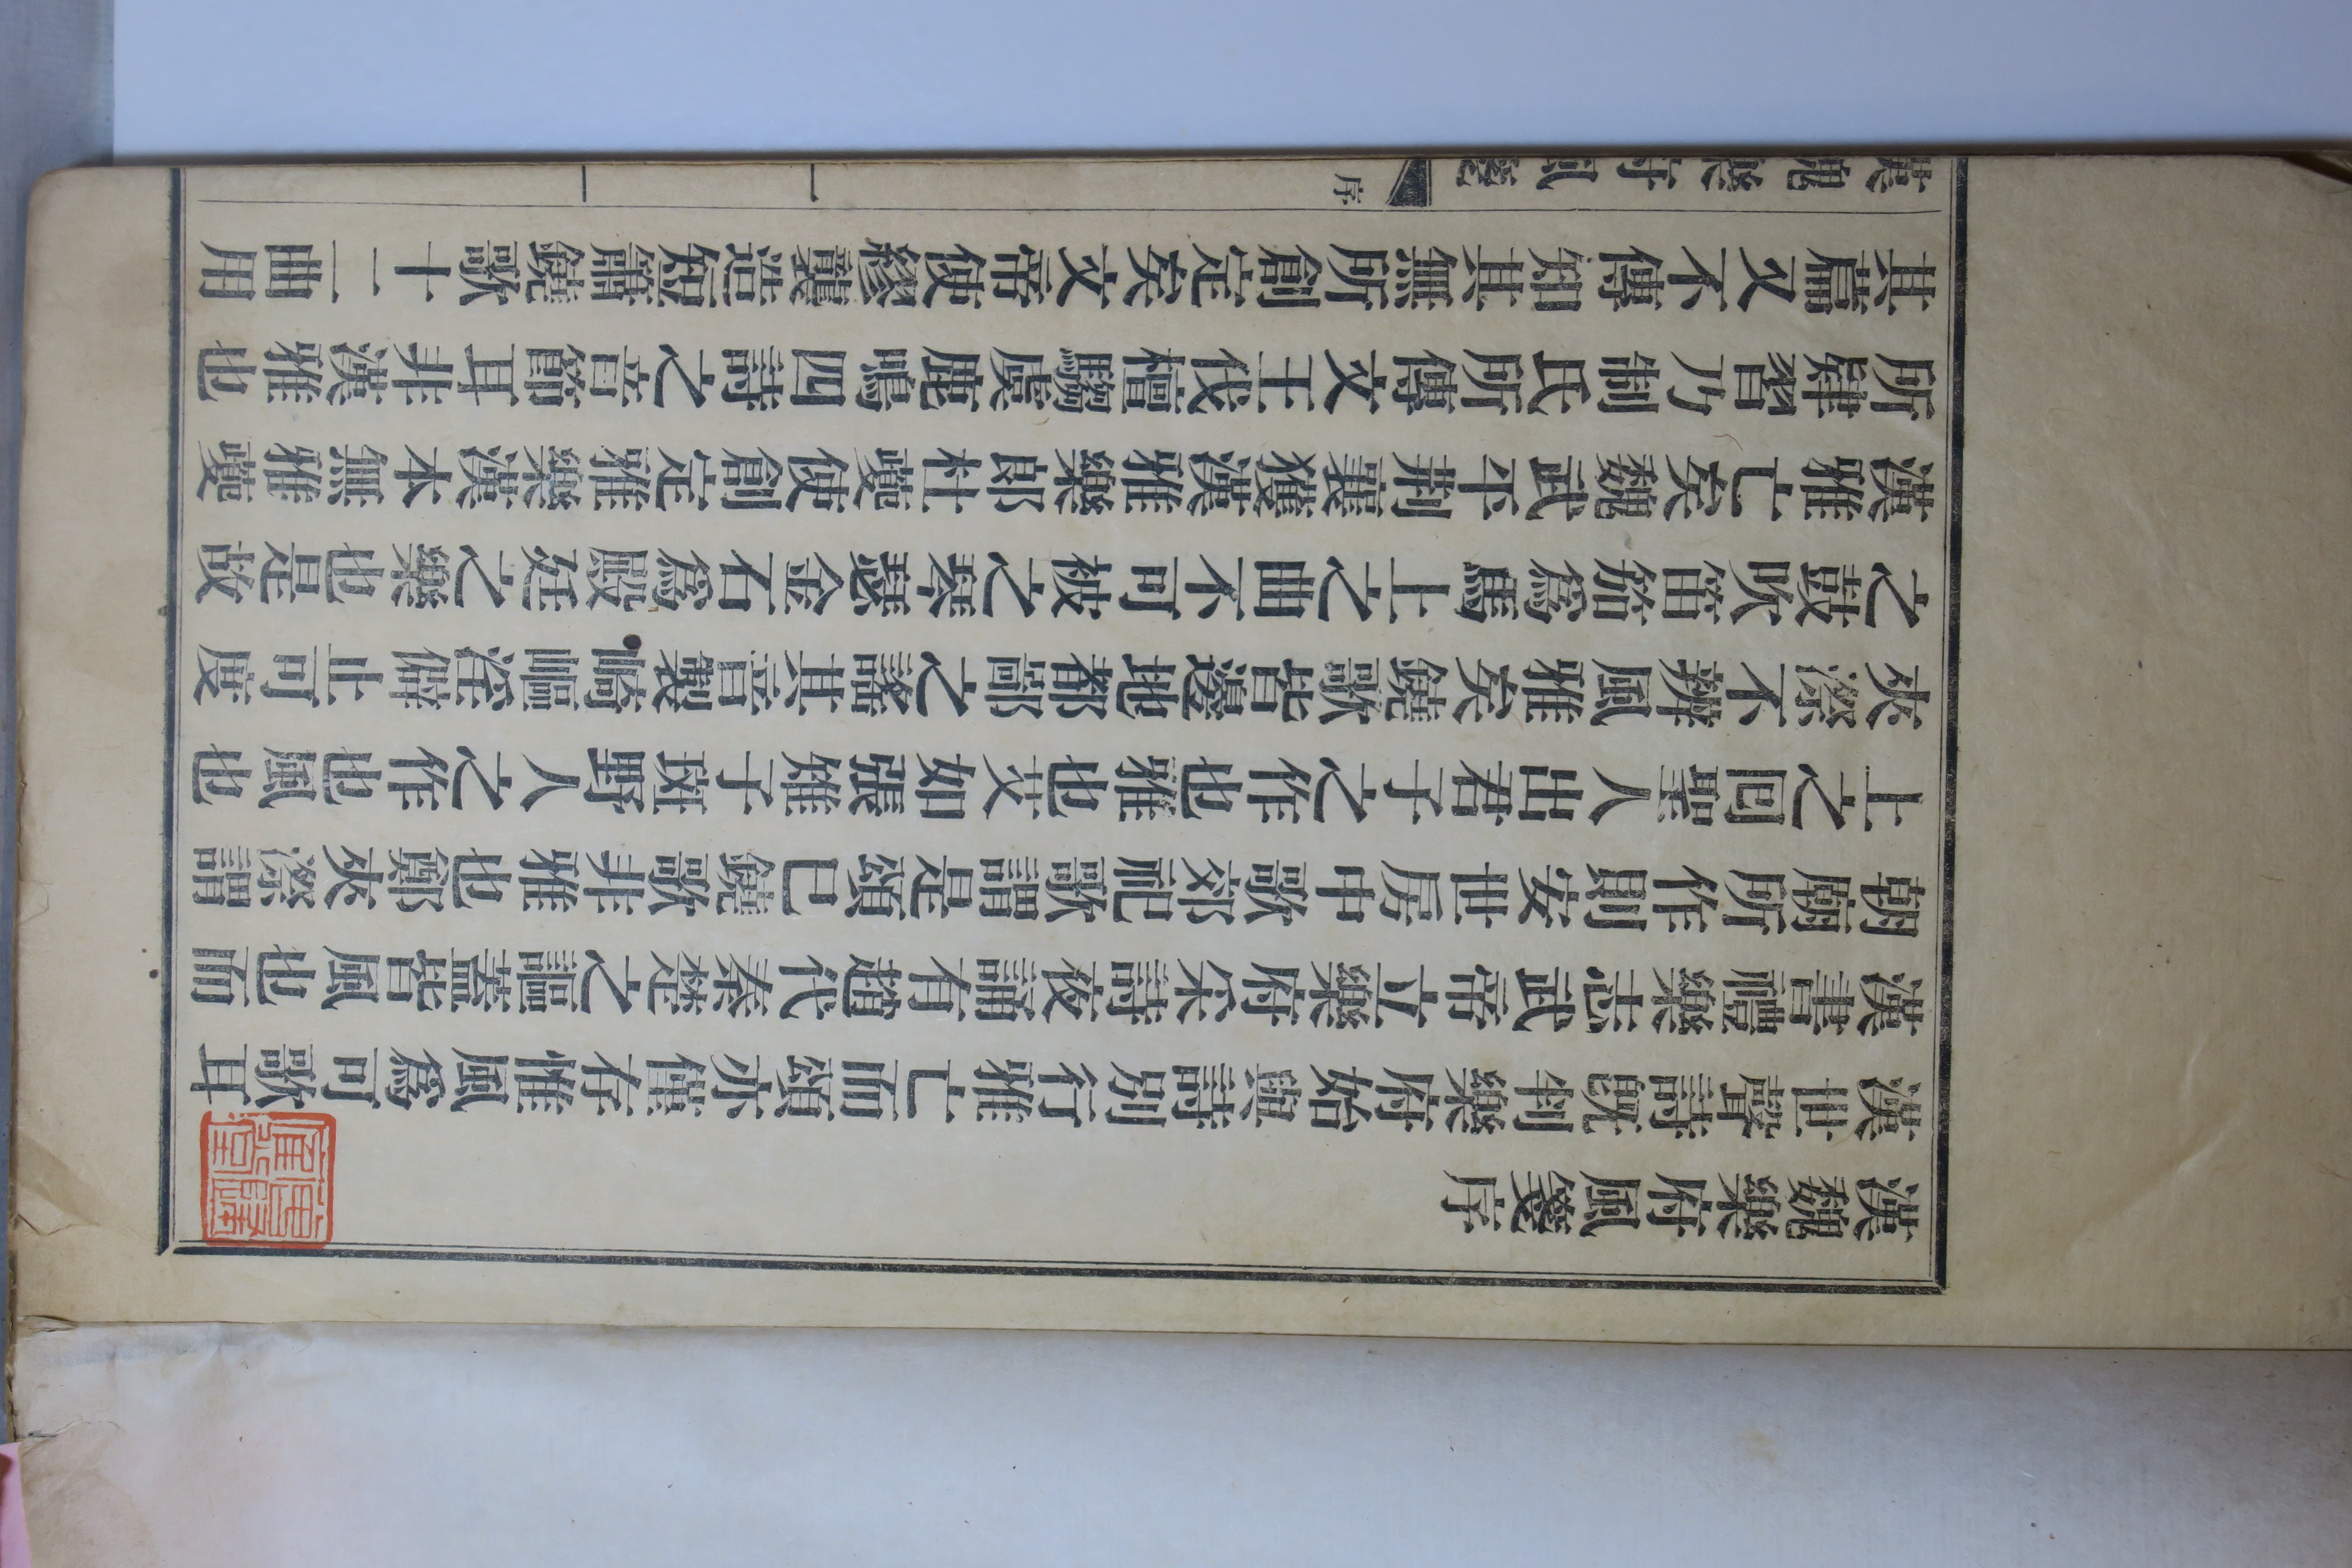 漢魏樂府風箋序
漢世聲詩旣判樂府始與詩別行雅亡而頌亦僅存惟風爲可歌耳
漢書禮樂志武帝立樂府采詩夜誦有趙代秦楚之謳蓋皆風也而
朝廟所作則安世房中歌郊祀歌謂是頌已鐃歌非雅也鄭夾漈謂
上之回聖人出君子之作也雅也艾如張雉子斑野人之作也風也
夾漈不辨風雅矣鐃歌皆邊地都鄙之謠其音製崎嶇淫僻止可度
之鼓吹笛笳爲馬上之曲不可被之琴瑟金石爲殿廷之樂也是故
漢雅亡矣魏武平荆襄獲漢雅樂郎杜夔使創定雅樂漢本無雅夔
所肄習乃制氏所傳文王伐檀騶虞鹿鳴四詩之音節耳非漢雅也
其篇又不傳知其無所創定矣文帝使繆襲造短簫鐃歌十二曲用
漢魏樂府風箋
序
一